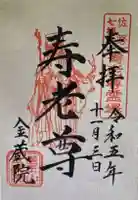 奉拝
令和五年
十一月三日
寿老尊
金蔵院